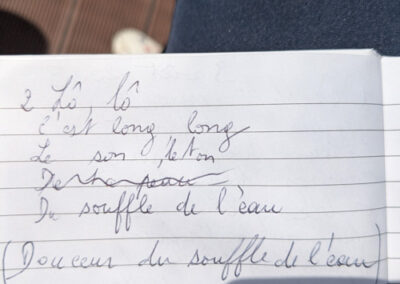 2 Lô, lô
c'est long long
Le son, le ton
De ta peau
Du souffle de l'eau
(Douceur du souffle de l'eau)